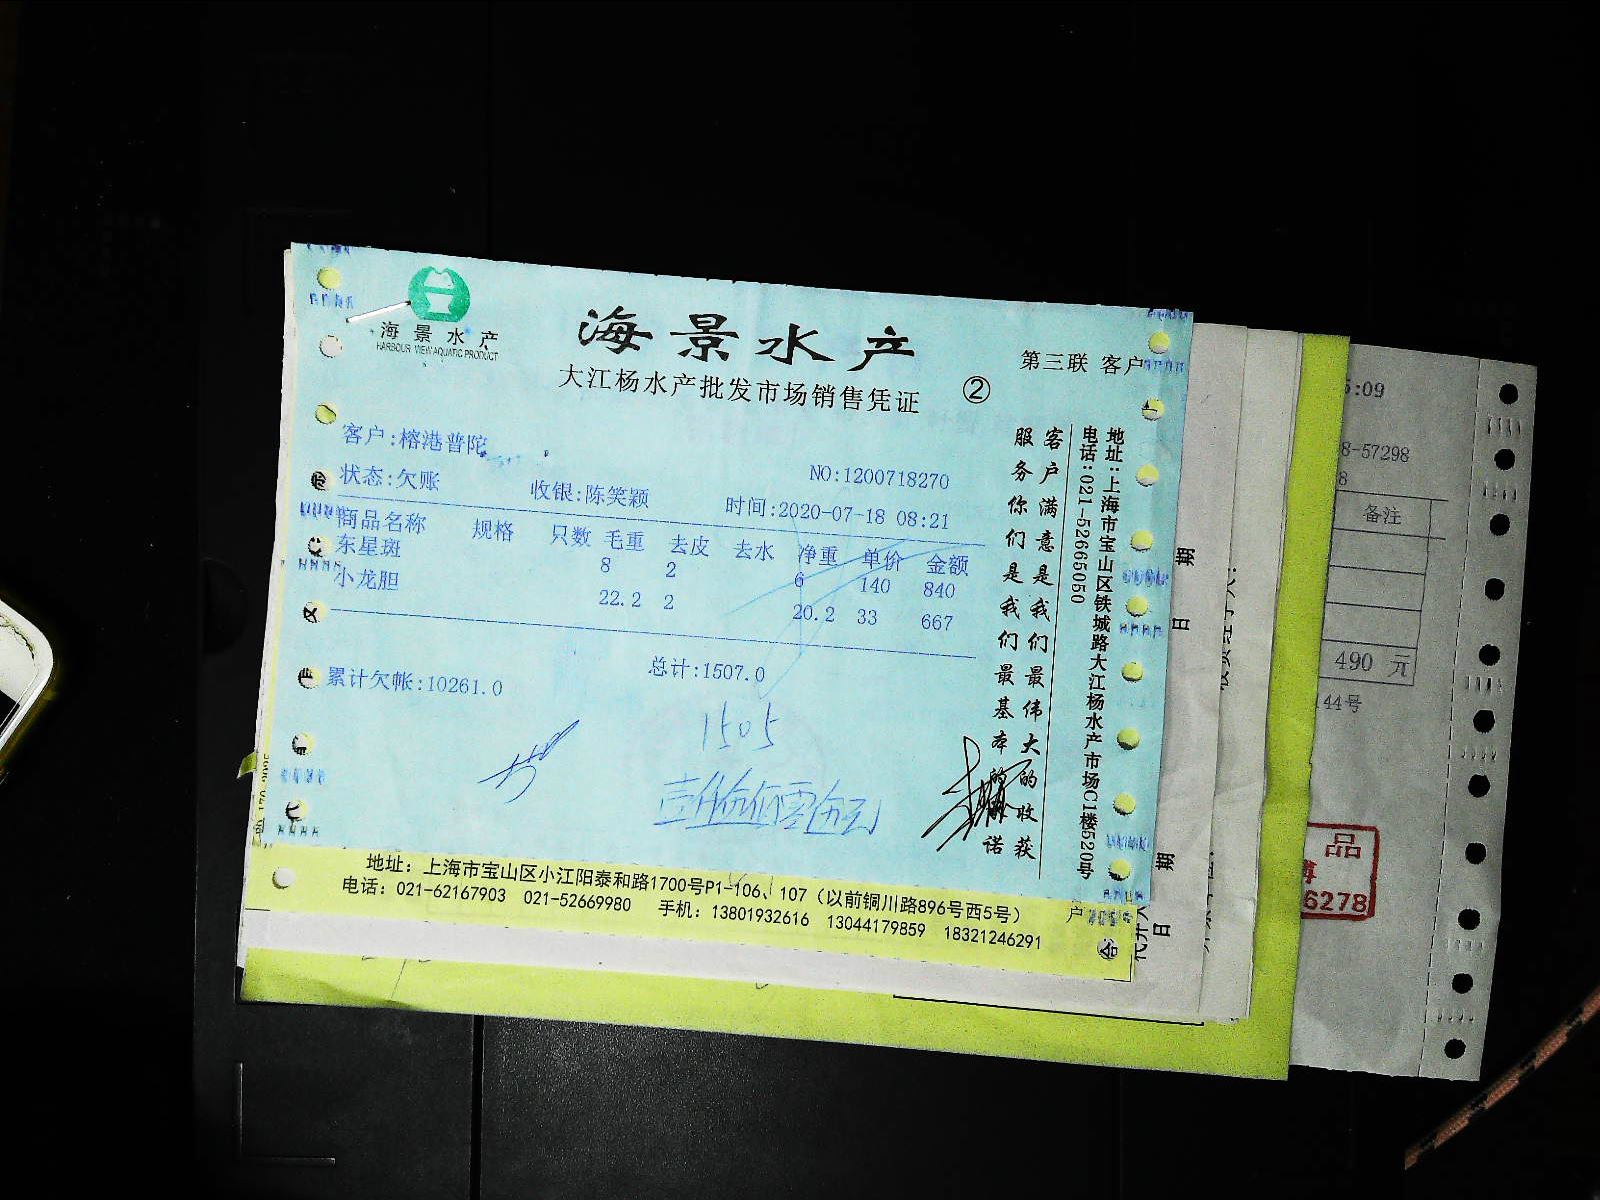 海景水产
HARBOUR VIEW AQUATIC PRODUCT
海景水产
大江杨水产批发市场销售凭证
②
第三联 客户
客户:榕港普陀
NO:1200718270
状态:欠账
收银:陈笑颖
时间:2020-07-18 08:21
商品名称 规格 只数 毛重 去皮 去水 净重 单价 金额
东星斑 8 2 6 140 840
小龙胆 22.2 2 20.2 33 667
累计欠帐:10261.0
总计:1507.0
1505
壹仟伍佰零伍元
客户满意是我们最伟大的收获
服务你们是我们最基本的承诺
地址:上海市宝山区铁城路大江杨水产市场C1楼520号
电话:021-52665050
地址：上海市宝山区小江阳泰和路1700号P1-106、107（以前铜川路896号西5号）
电话：021-62167903 021-52669980 手机：13801932616 13044179859 18321246291
户
日 期
日 期
5:09
8-57298
8
备注
490 元
144号
品
6278